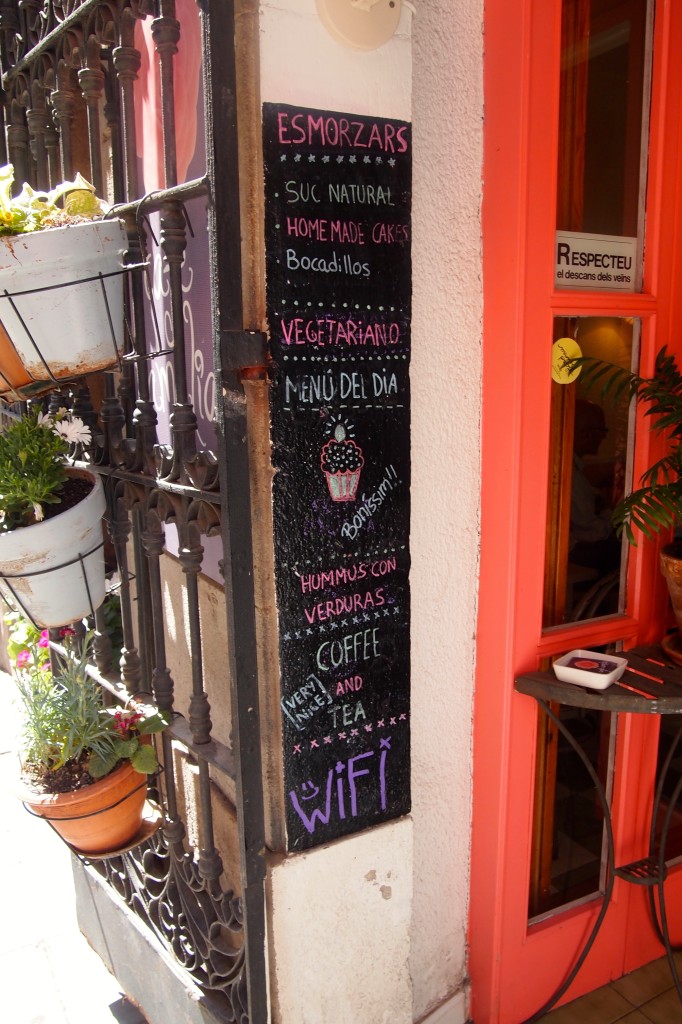 ESMORZARS
SUC NATURAL
HOME MADE CAKES
Bocadillos
VEGETARIANO
MENÚ DEL DIA
Boníssim!!
HUMMUS CON
VERDURAS
COFFEE
(VERY NICE)
AND
TEA
WiFi
RESPECTEU
el descans dels veïns